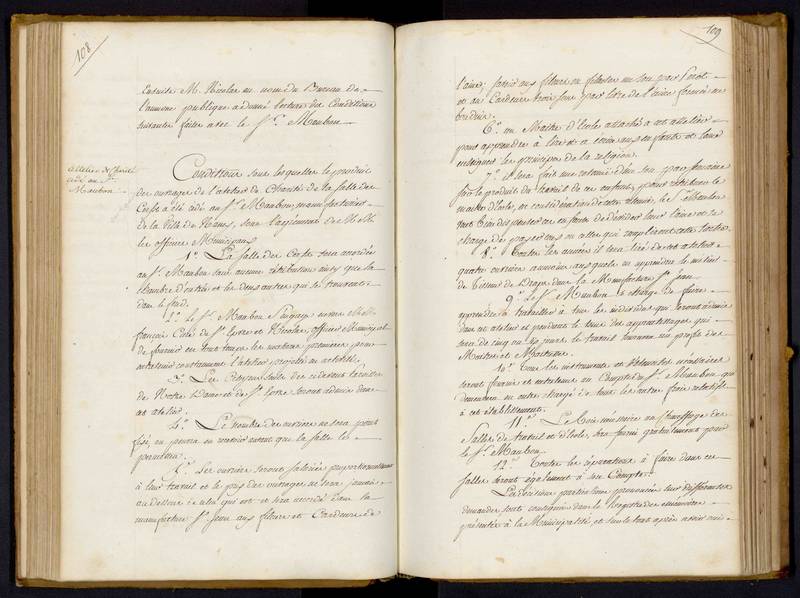 108
Ensuite M. Nicolas au nom du Bureau de
l'aumone publique a donné lecture des Conditions
suivantes faites avec le S.r Maubon
attelier de Charité
cédé au S.r
Maubon
Conditions sous lesquelles le produit
des ouvrages de l'atelier de Charité de la Salle des
Cerfs a été cédé au S.r Maubon, manufacturier
de la Ville de Nancy, sous l'agrément de MM.
les officiers Municipaux
1.o La Salle des Cerfs sera accordée
au S.r Maubon sans aucune rétribution ainsy que la
chambre d'entrée et les deux autres qui se trouvent
dans le fond.
2.o Le S.r Maubon S'engage envers MM.
françois Curé de S.t Epvre et Nicolas, officier Municipal
de fournir en tout temps les matieres premieres pour
entretenir constamment l'atelier projetté en activité.
3.o Les Citoyens seuls des cidevant paroisses
de Notre Dame et de S.t Epvre seront admis dans
cet atelier.
4.o Le nombre des ouvriers ne sera point
fixé, on pourra en recevoir autant que la salle le
permettra.
5.o Les ouvriers seront salariés proportionnellement
à leur travail et le prix des ouvrages ne sera jamais
au dessous de celui qui est et sera accordé dans la
manufacture S.t Jean aux fileurs et Cardeurs de
109
laine; savoir aux fileurs ou fileuses un sou par
et au Cardeurs trois sous par livre de laine
6.o un Maitre d'Ecole attaché à cet attelier
pour apprendre à lire et à écrire aux enfants et leur
enseigner les principes de la religion.
7.o Il sera fait une retenue d'un sou par semaine
sur le produit du travail de ces enfants, pour rétribuer le
maitre d'Ecole, en considération de cette retenue, le S.r Maubon
de la laine et se
charge de payer ceux ou celles qui rempliront cette tache.
8.o Toutes les années il sera tiré de cet atelier
quatre ouvriers auxquels on apprendra le métier
de Tisseur de Draps dans la Manufacture S.t Jean.
9.o Le S.r Maubon se charge de faire
apprendre à travailler à tous les individus qui seront admis
dans cet atelier et pendant le tems des apprentissages qui
sera de cinq ou six jours, le travail tournera au profit des
Maitres et Maitresses.
10.o Tous les instruments et Ustensiles nécessaires
seront fournis et entretenus au Compte du S.r Maubon, qui
demeurera en outre chargé de tous les autres frais relatifs
à cet établissement.
11.o Le Bois nécessaire au Chauffage des
Salles de travail et d'Ecole, sera fourni gratuitement par
le S.r Maubon.
12.o Toutes les réparations à faire dans ces
salles seront également à son Compte.
Les décisions particulieres prononcées sur différentes
demandes, sont consignées dans le Registre des mémoires
présentés à la Municipalité, et sur le tout après avoir oui